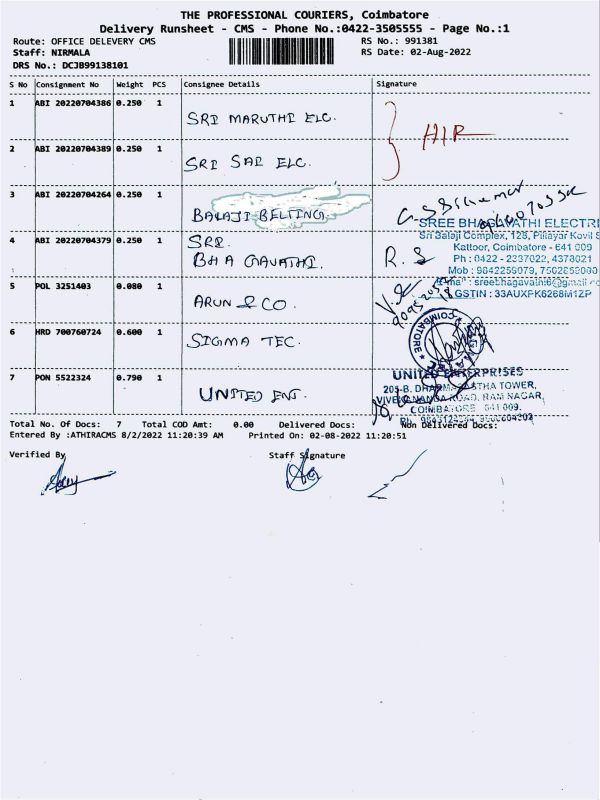 THE PROFESSIONAL COURIERS, Coimbatore
Delivery Runsheet - CMS - Phone No.:0422-3505555 - Page No.:1
Route: OFFICE DELEVERY CMS
RS No.: 991381
Staff: NIRMALA
RS Date: 02-Aug-2022
DRS No.: DCJB99138101
S No Consignment No Weight PCS Consignee Details Signature
1 ABI 20220704386 0.250 1 SRI MARUTHI ELC.
HIR
2 ABI 20220704389 0.250 1 SRI SAI ELC.
3 ABI 20220704264 0.250 1 BALAJI BELTING
SREE BHAGAVATHI ELECTRI
Sri Balaji Complex, 128, Pillayar Kovil S
Kattoor, Coimbatore - 641 009
Ph : 0422 - 2337022, 4378021
Mob : 9842259079, 7502859080
sreebhagavathi6@gmail
GSTIN : 33AUXPK6268M1ZP
4 ABI 20220704379 0.250 1 SRI
BHAGAVATHI.
R. S
5 POL 3251403 0.080 1 ARUN & CO.
6 HRD 700760724 0.600 1 SIGMA TEC.
COIMBATORE
7 PON 5522324 0.790 1 UNITED ENT.
UNITED ENTERPRISES
205-B. DHARMASASTHA TOWER,
VIVEKANANDA ROAD, RAM NAGAR,
COIMBATORE 641 009.
Total No. Of Docs: 7 Total COD Amt: 0.00 Delivered Docs: Non Delivered Docs:
Entered By :ATHIRACMS 8/2/2022 11:20:39 AM Printed On: 02-08-2022 11:20:51
Verified By Staff Signature